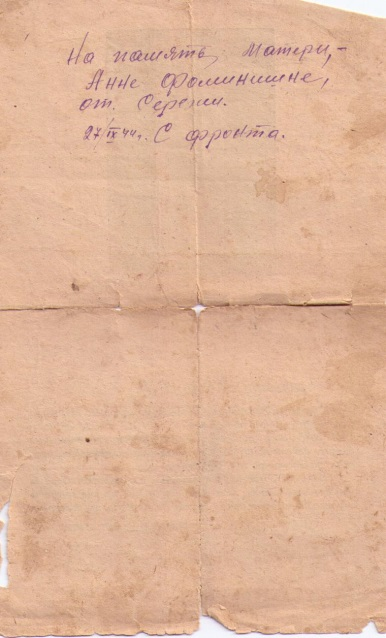 На память, матери,-
Анне Фоминишне,
от Сережи.
27/IX 44г. С фронта.